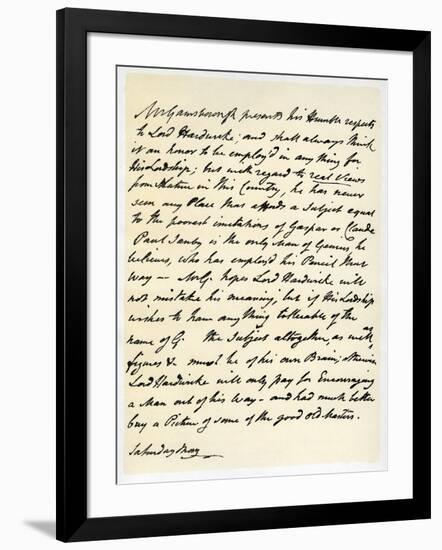 Mr Gainsborough presents his Humble respects
to Lord Hardwicke; and shall always think
it an honor to be employ'd in any thing for
His Lordship; but with regard to real Views
from Nature in this Country, he has never
seen any Place that affords a Subject equal
to the poorest imitations of Gaspar or Claude
Paul Sanby is the only Man of Genius he
believes, who has employ'd his Pencil that
Way — Mr G. hopes Lord Hardwicke will
not mistake his meaning, but if His Lordship
wishes to have any thing tollerable of the
name of G. the Subject altogether, as well as
figures & must be of his own Brain; otherwise
Lord Hardwicke will only pay for Encouraging
a Man out of his Way — and had much better
buy a Picture of some of the good old Masters.
Saturday Morg